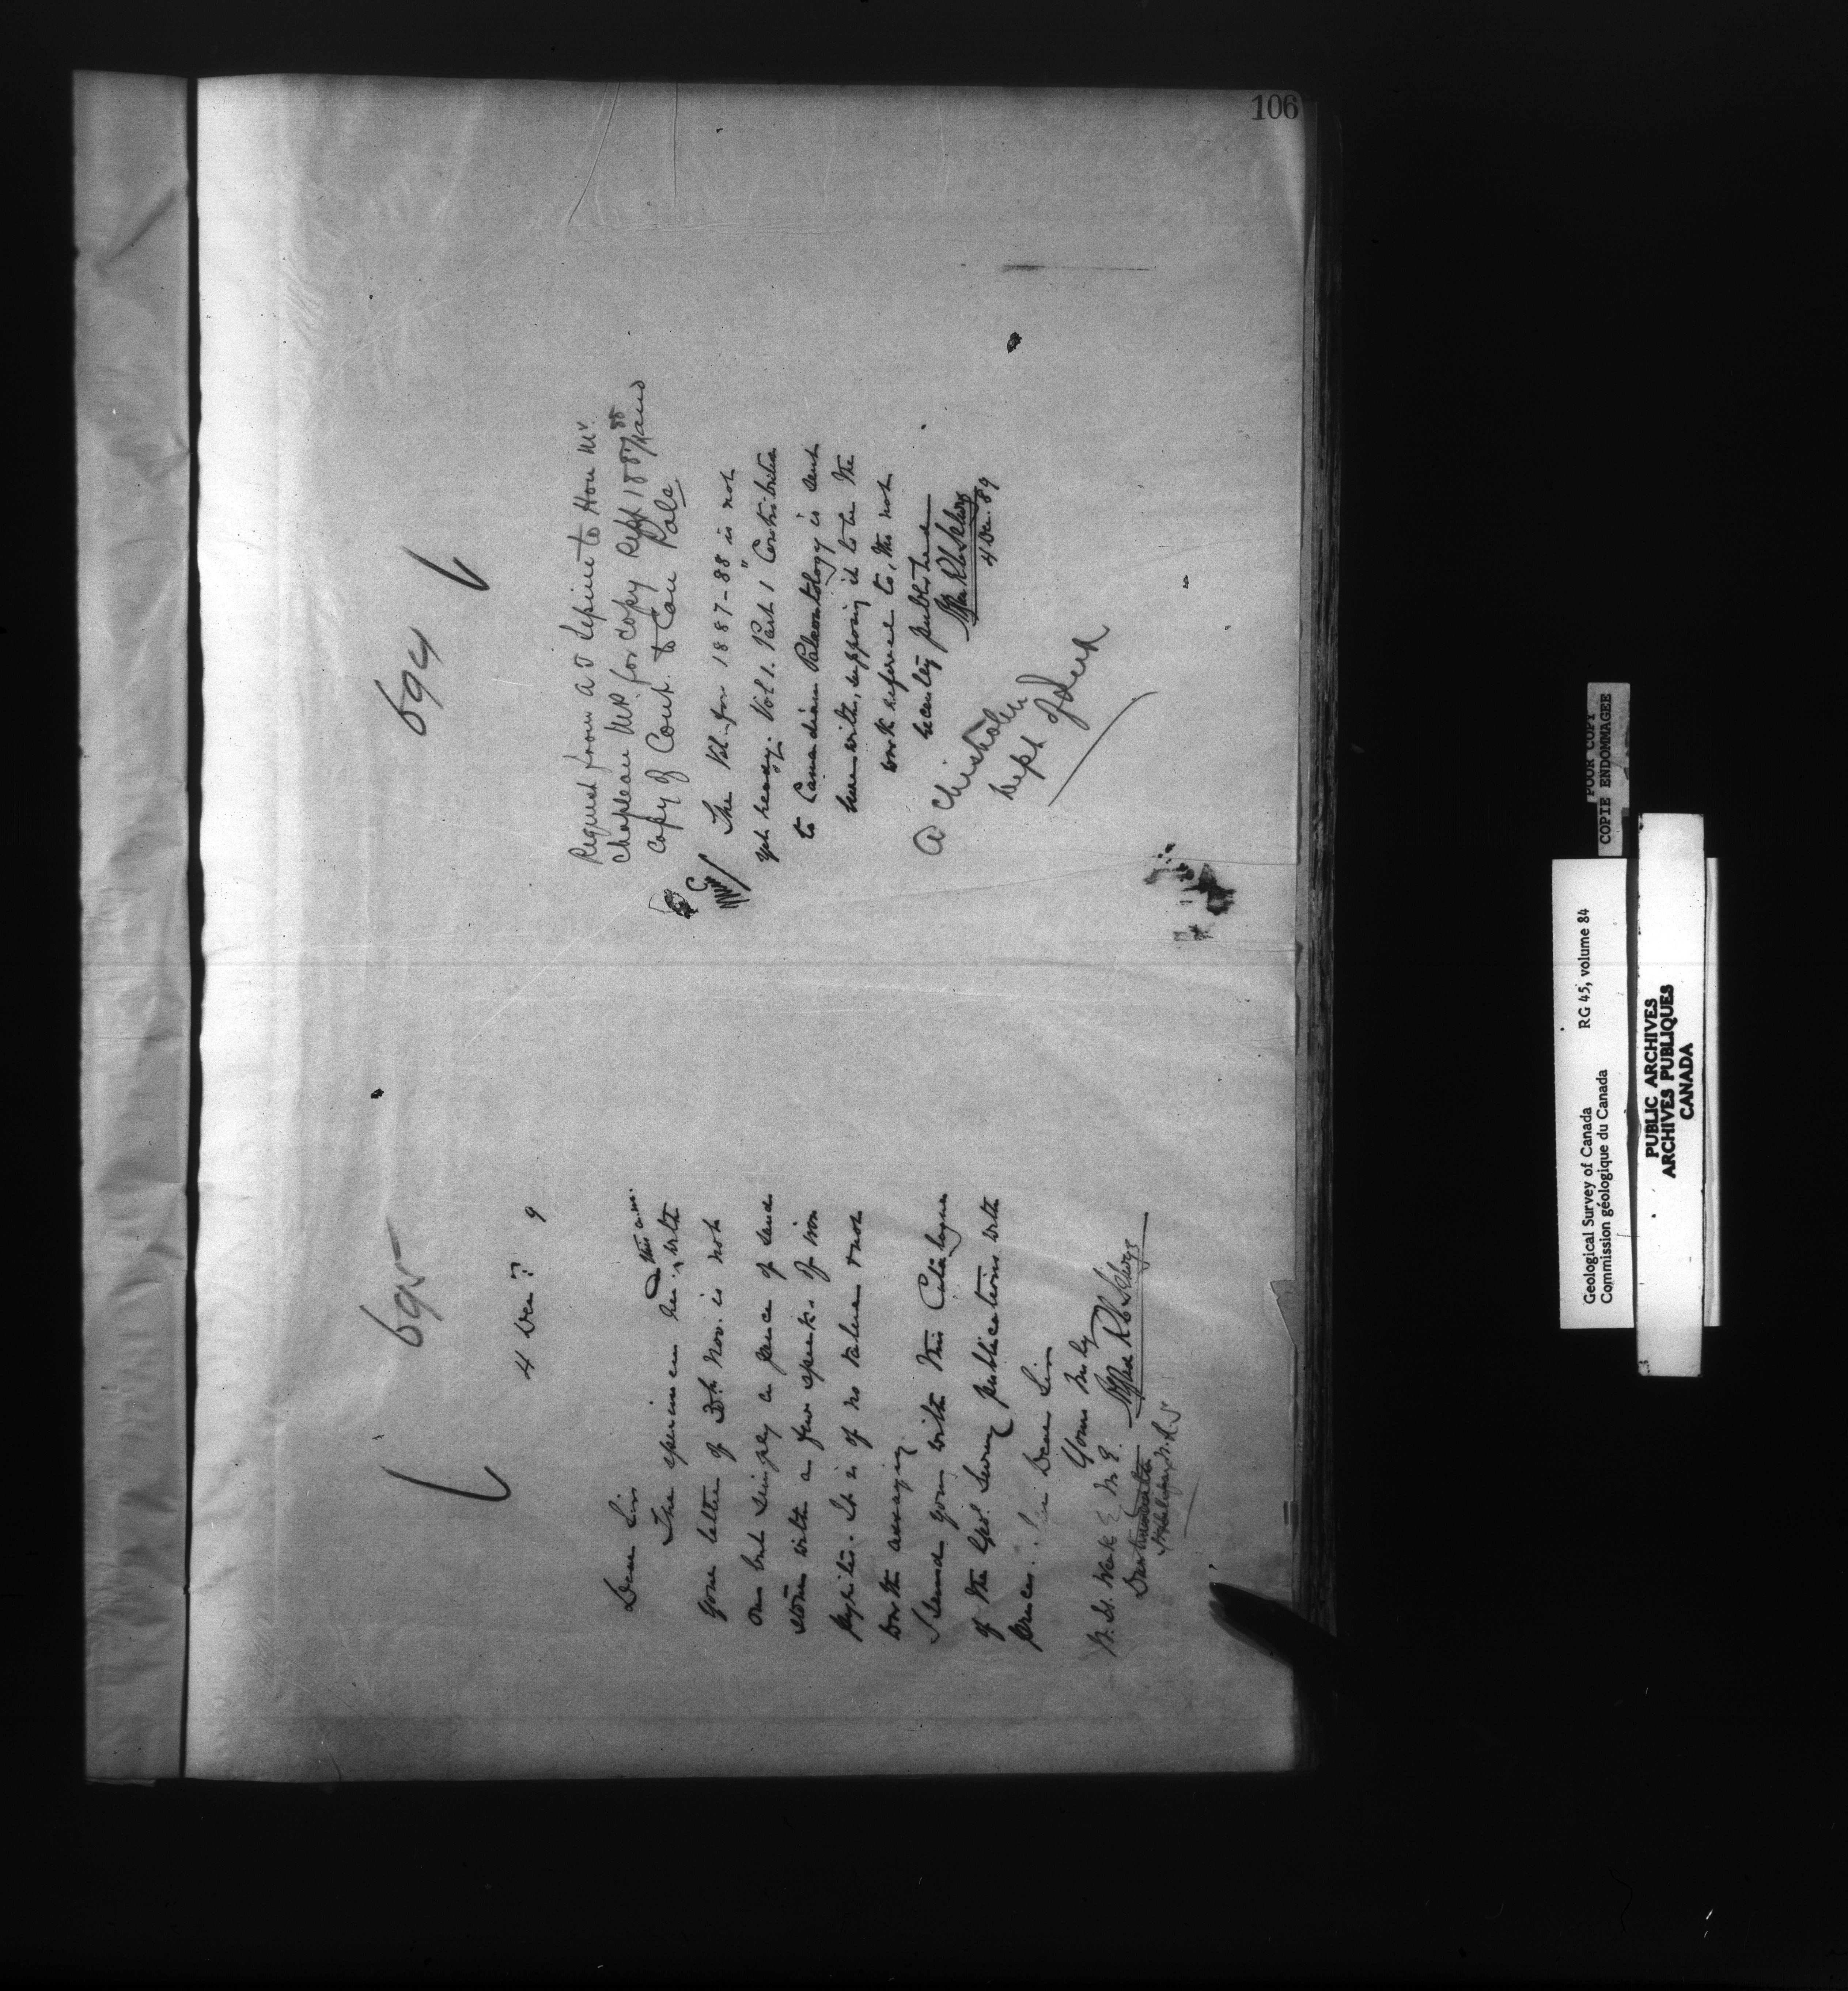 106
695
4 Dec. 9
Dear Sir
The specimen
this a.m.
your letter of 30th Nov. is not
one but simply a piece of sand
stone with a few specks of iron
pyrites. It is of no value & not
worth assaying
I send you with this Catalogue
of the Geol. Survey publications with
prices. Dear Sir
Yours truly
Alfred R. C. Selwyn
M. E.
Dartmouth
Halifax, N.S.
694
Request from A T Lepine to Hon Mr.
Chapleau MP. for copy Rept 1887/88 and
copy of Cont. to Can Pale
The Vol. for 1887-88 is not
yet ready. Vol 1. Part 1 "Contribution
to Canadian Paleontology is sent
herewith, supposing it to be the
work referred to, tho not
recently published
Alfred R C Selwyn
4 Dec. 89
A Chisholm
Dept of
POOR COPY
COPIE ENDOMMAGEE
Geological Survey of Canada RG 45, volume 84
Commission géologique du Canada
PUBLIC ARCHIVES
ARCHIVES PUBLIQUES
CANADA